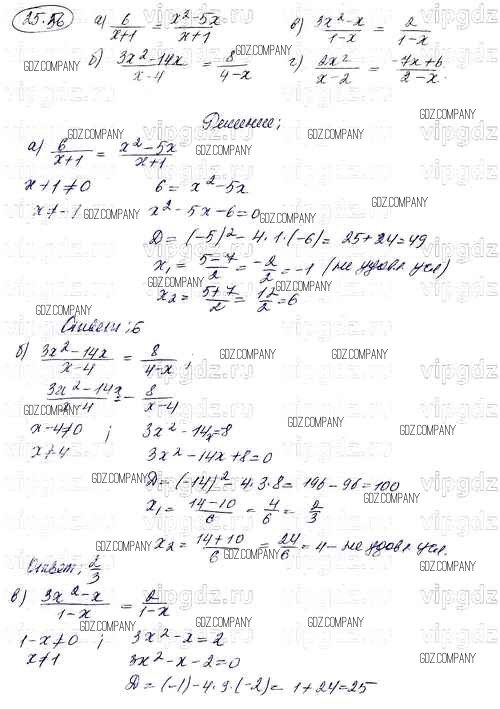 25.36 а) 6/(x+1) = (x²-5x)/(x+1) в) (3x²-x)/(1-x) = 2/(1-x)
б) (3x²-14x)/(x-4) = 8/(4-x) г) 2x²/(x-2) = (-7x+6)/(2-x)
Решение;
а) 6/(x+1) = (x²-5x)/(x+1)
x+1≠0 6 = x²-5x
x≠-1 x²-5x-6=0
D = (-5)²-4·1·(-6) = 25+24=49
x₁ = (5-7)/2 = -2/2 = -1 (не удовл усл)
x₂ = (5+7)/2 = 12/2 = 6
Ответ: 6
б) (3x²-14x)/(x-4) = 8/(4-x);
(3x²-14x)/(x-4) = - 8/(x-4)
x-4≠0; 3x²-14x=8
x≠4 3x²-14x+8=0
D = (-14)²-4·3·8 = 196-96=100
x₁ = (14-10)/6 = 4/6 = 2/3
x₂ = (14+10)/6 = 24/6 = 4 - не удовл усл.
Ответ: 2/3
в) (3x²-x)/(1-x) = 2/(1-x)
1-x≠0; 3x²-x=2
x≠1 3x²-x-2=0
D = (-1)-4·3·(-2) = 1+24=25
GDZ.COMPANY
vipgdz.ru